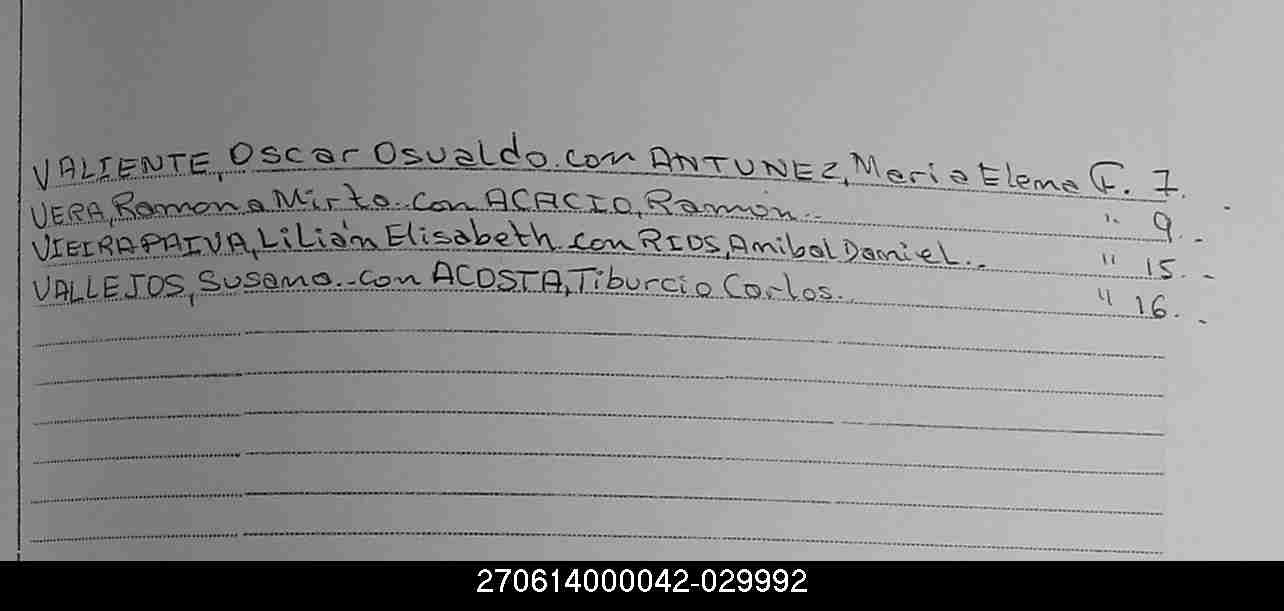 VALIENTE, Oscar Osvaldo. con ANTUNEZ, Maria Elena F. 7.
VERA, Ramona Mirta. con ACACIO, Ramón.. " 9..
VIEIRA PAIVA, Lilián Elisabeth con RIOS, Anibal Daniel.. " 15..
VALLEJOS, Susana.-con ACOSTA, Tiburcio Carlos.. " 16..
270614000042-029992